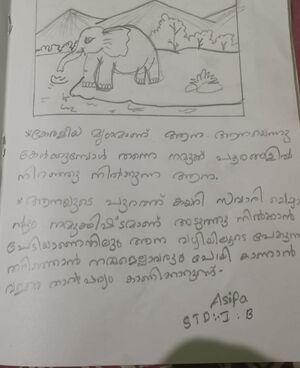 *ഭീകരജീവി മൃഗമാണ് ആന. ആനയെന്നു
കേൾക്കുമ്പോൾ തന്നെ നമുക്ക്
നിറഞ്ഞു നിൽക്കുന്ന ആന.
* ആനയുടെ പുറത്ത് കയറി സവാരി
നമുക്കിഷ്ടമാണ് അടുത്തു നിൽക്കാൻ
പേടിയാണെങ്കിലും ആന വഴിയിലൂടെ
നമ്മളെല്ലാവരും കാണാൻ
വളരെ താൽപര്യം കാണിക്കാറുണ്ട്.
Asifa
STD:-I. B